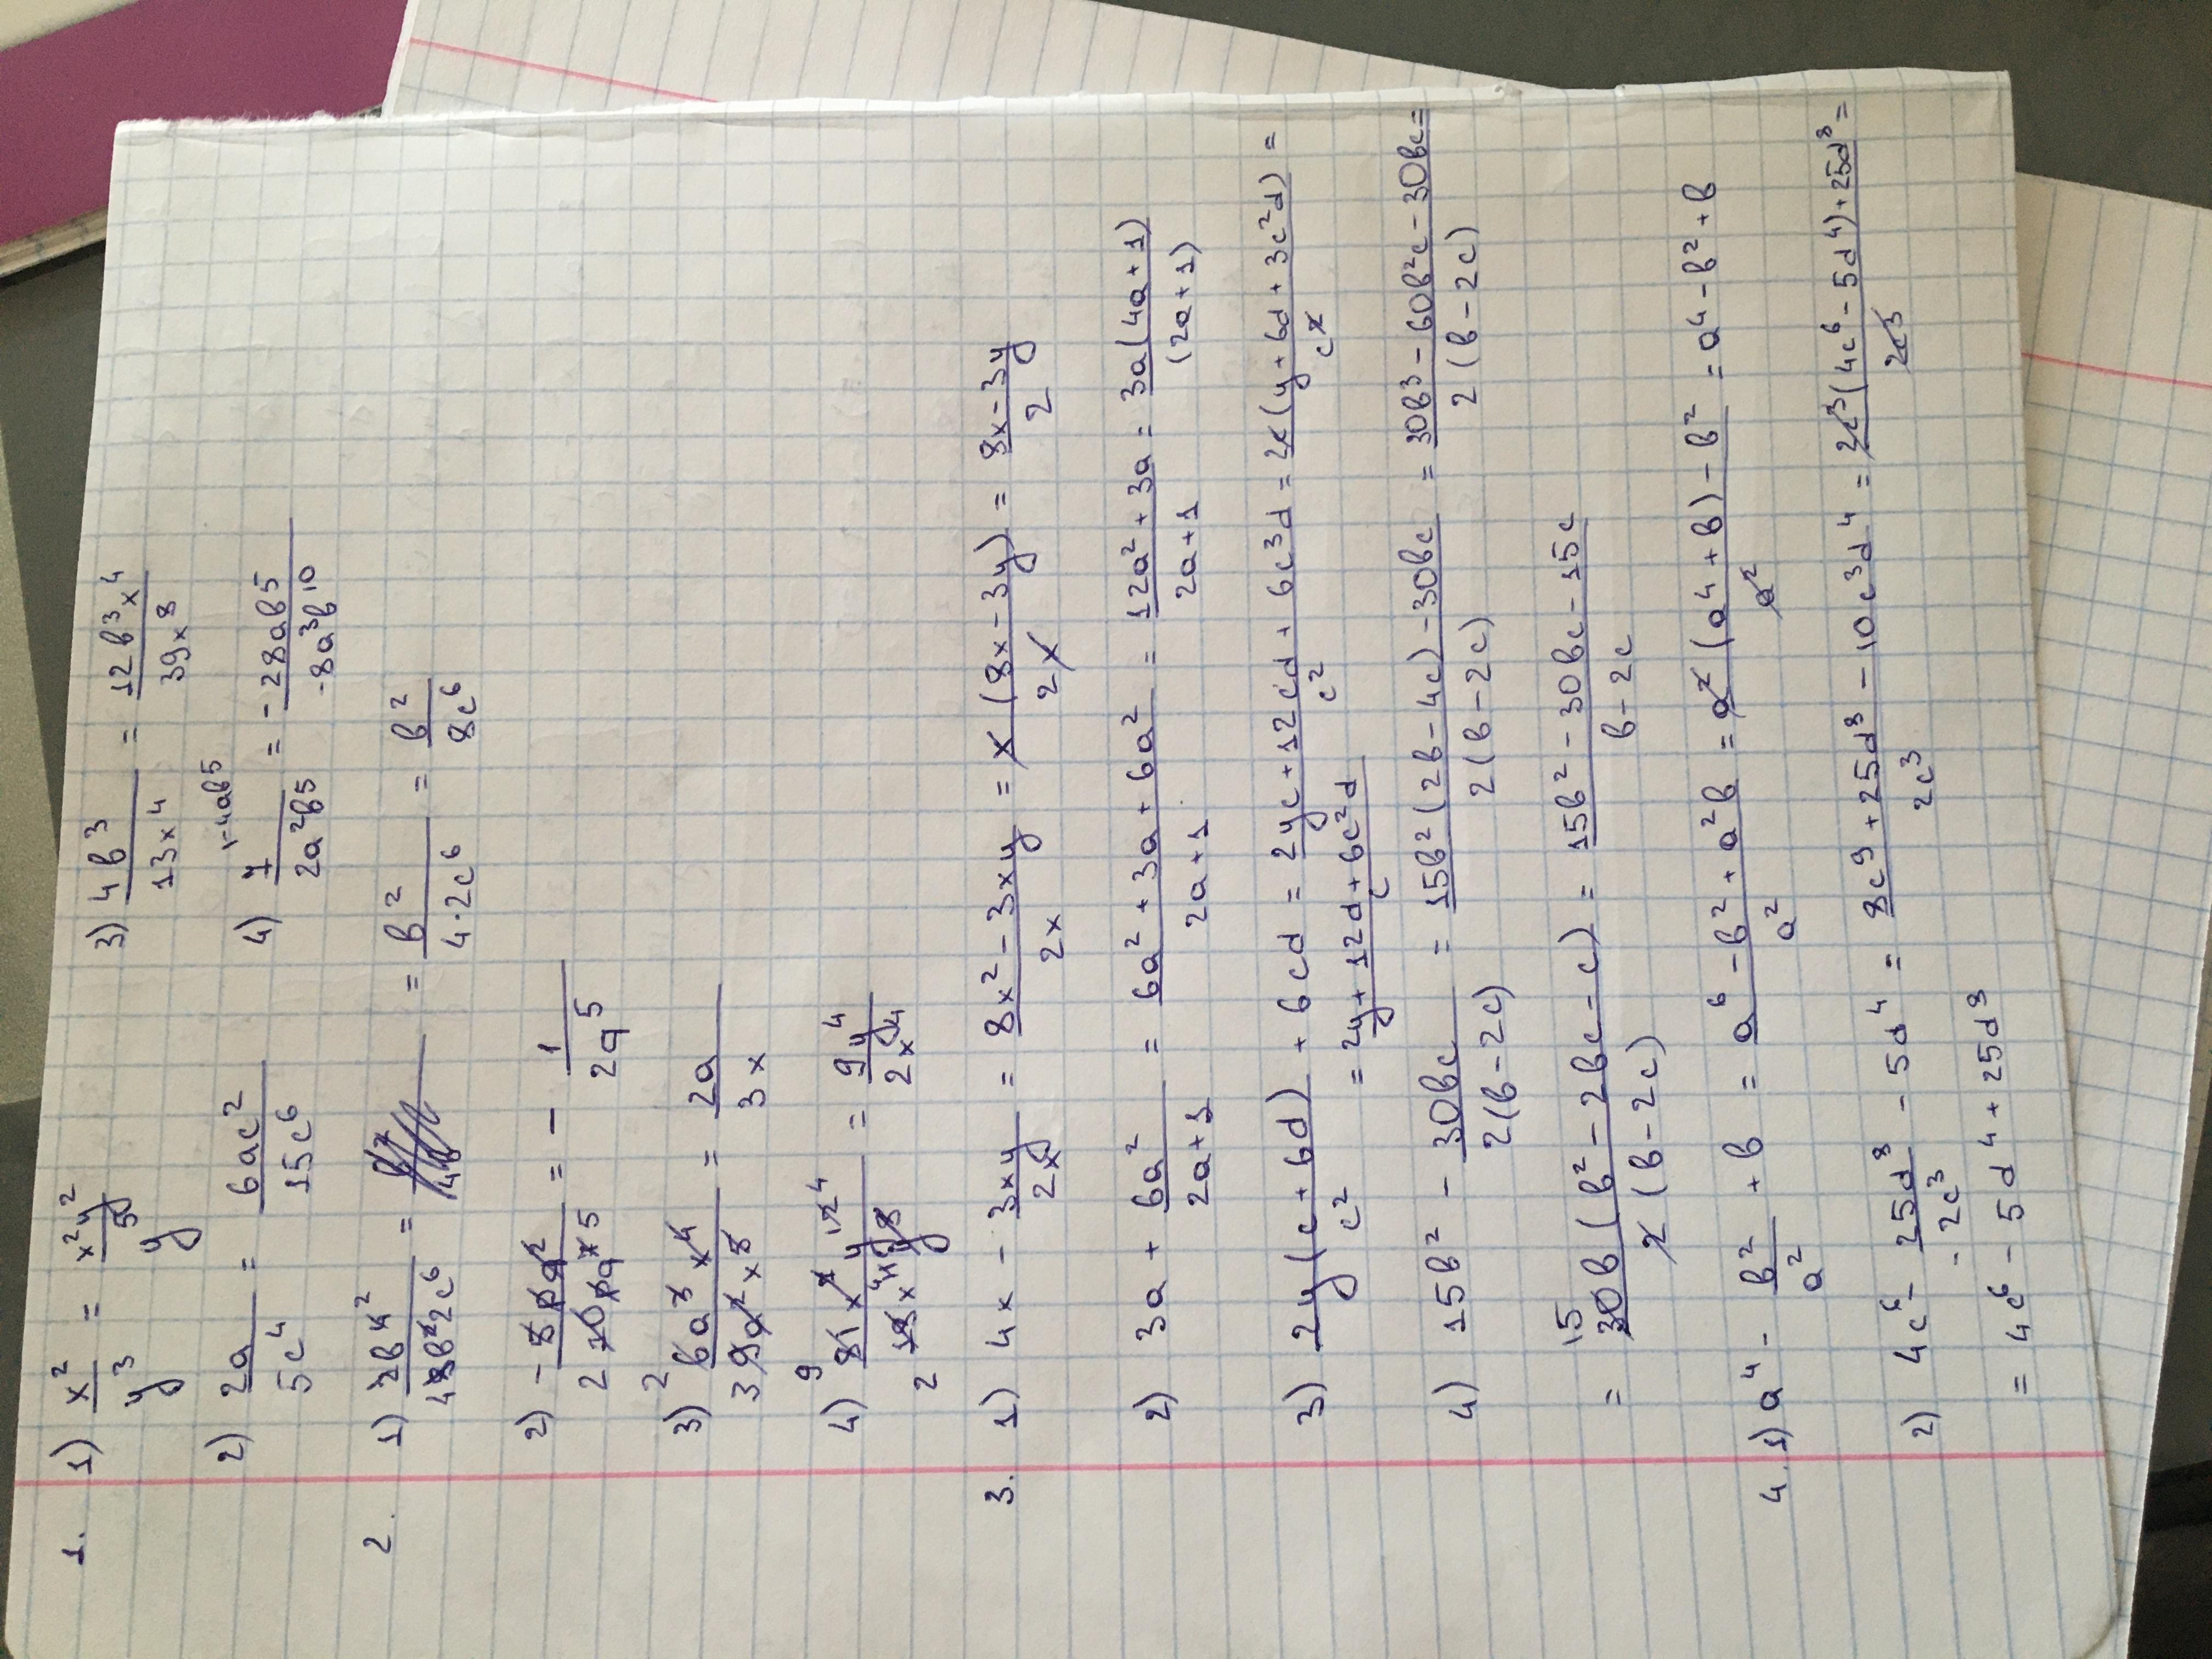 1. 1) x²/y³ = x²y²/y⁵ 3) 4b³/13x⁴ = 12b³x⁴/39x⁸
2) 2a/5c⁴ = 6ac²/15c⁶ 4) 7 1-4ab5/2a²b⁵ = -28ab⁵/-8a³b¹⁰
2. 1) 2b⁴²/48b²2c⁶ = = b²/4·2c⁶ = b²/8c⁶
2) - 5a²/2 10a⁷5 = - 1/2a⁵
3) 2 6a³x⁴/3 9a²x⁵ = 2a/3x
4) 9 81x²y¹²4/2 18x⁴y⁸ = 9y⁴/2x⁴
3. 1) 4x - 3xy/2x = 8x² - 3xy/2x = x(8x - 3y)/2x = 8x - 3y/2
2) 3a + 6a²/2a+1 = 6a² + 3a + 6a²/2a+1 = 12a² + 3a/2a+1 = 3a(4a+1)/(2a+1)
3) 2y(c+6d)/c² + 6cd = 2yc + 12cd + 6c³d/c² = 2c(y + 6d + 3c²d)/c² =
= 2y + 12d + 6c²d/c
4) 15b² - 30bc/2(b-2c) = 15b²(2b-4c) - 30bc/2(b-2c) = 30b³ - 60b²c - 30bc/2(b-2c) =
= 15 30b(b² - 2bc - c)/2(b-2c) = 15b² - 30bc - 15c/b-2c
4. 1) a⁴ - b²/a² + b = a⁶ - b² + a²b/a² = a²(a⁴+b) - b²/a² = a⁴ - b² + b
2) 4c⁶ - 25d⁸/-2c³ - 5d⁴ = 8c⁹ + 25d⁸ - 10c³d⁴/2c³ = 2c³(4c⁶ - 5d⁴) + 25d⁸/2c³ =
= 4c⁶ - 5d⁴ + 25d⁸